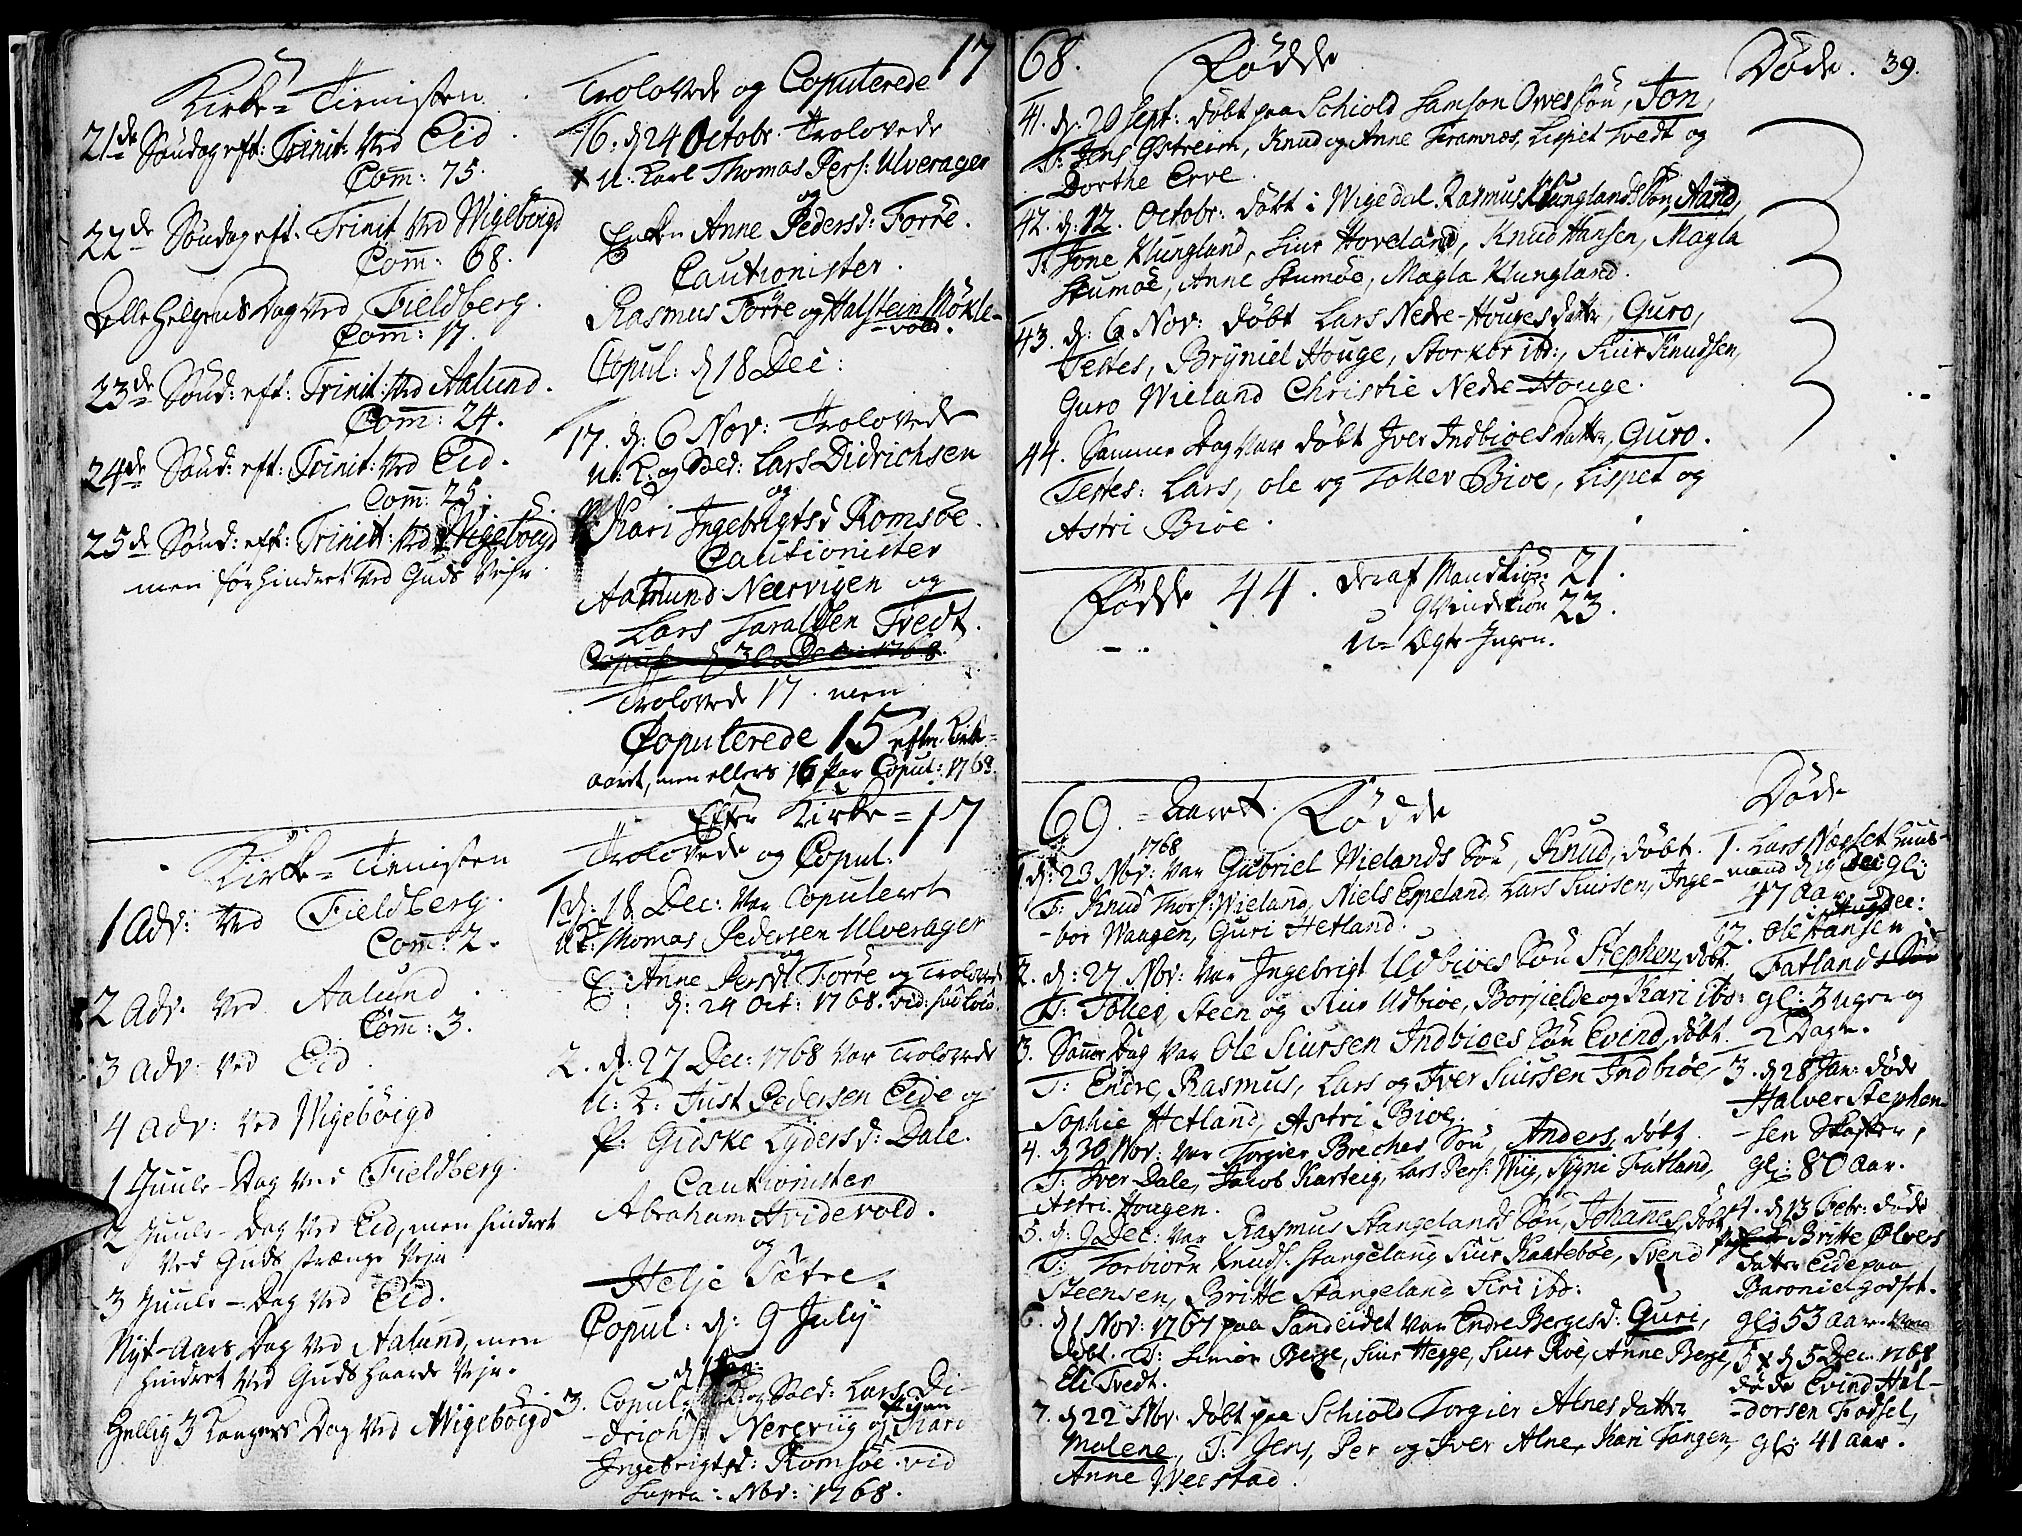 Kirke-Tienisten
21de Søndag eft: Trinit: ved Eid
Com: 75.
22de Søndag eft: Trinit ved Wigebøigd
Com: 68.
Alle Helgens Dag ved Fieldberg.
Com: 17.
23de Sønd: eft: Trinit: ved Aalund.
Com: 24.
24de Sønd: eft: Trinit: ved Eid.
Com: 25.
25de Sønd: eft: Trinit: ved Wigebøigd
men forhindret ved Guds Vejr
Kirke-Tienisten
1 Adv: ved Fieldberg.
Com: 2.
2 Adv: ved Aalund.
Com: 3.
3 Adv: ved Eid.
4 Adv: ved Wigebøigd
1 Juule-Dag ved Fieldberg.
2 Juule-Dag ved Eid, men hindret
ved Guds strænge Vejr
3 Juule-Dag ved Eid.
Nyt-Aars Dag ved Aalund, men
hindret ved Guds haarde Vejr.
Hellig 3 Kongers Dag ved Wigebøigd
17
Trolovede og Copulerede
16. d: 24 Octobr: Trolovede
U: Karl Thomas Pers: Ulverager
og
Enken Anne Pedersd: Førre.
Cautionister.
Rasmus Førre og Halstein Møkle-
vold.
Copul: d 18 Dec:
17. d: 6 Nov: Trolovede
U: K: og Sold: Lars Didrichsen
og
P: Kari Ingebrigtsd Romsøe.
Cautionister
Aamund Neervigen og
Lars Taraldsen Tvedt.
Copul: d 30 Dec: 1768.
Trolovede 17. men
Copulerede 15 efter Kirke-
aaret, men ellers 16 Par Copul: 1768.
Efter Kirke-17
Trolovede og Copul:
1. d: 18 Dec: var Copuleret
UK: Thomas Pedersen Ulverager
og
E: Anne Persd: Førre og Trolovede
d: 24 Oct: 1768. vid: hui loco.
2. d: 27 Dec: 1768 var Trolovede
U: K: Just Pedersen Eide og
P: Gidske Lydersd: Dale.
Cautionister
Abraham Hvidevold.
og
Helje Sætre.
Copul: d: 9 July
d 1 Jan:
3. Copul: Sold: Lars Di-
drichs: Nereviig og Pigen Kari
Ingebrigtsd: Romsøe. vid
supra: Nov: 1768.
68. Fødde Døde. 39.
41. d: 20 Sept: døbt paa Schiold Samson Orres Søn, Jon,
T: Jens Østreim, Knud og Anne Framnæs, Lispet Tvedt og
Dorthe Erve.
42. d: 12. Octobr: døbt i Wigedal. Rasmus Klunglands Søn, Aand,
T: Jone Klungland, Siur Hoveland, Knud Hansen, Magla
Skumøe, Anne Skumøe, Magla Klungland.
43. d: 6 Nov: døbt Lars Nedre-Houges datter, Guro,
Testes, Bryniel Houge, Storkor ibd:, Siur Knudsen,
Guro Wieland Christie Nedre-Houge.
44. Samme Dag var døbt Iver Indbioes Datter, Guro.
Testes: Lars, Ole og Tollev Bioe, Lispet og
Astri Bioe.
Fødde 44. deraf Mandkiøn: 21.
Qvindekiøn 23.
U-Ægte Ingen.
69. -Aaret. Fødde
1768
1. d: 23 Nov: var Gabriel Wielands Søn, Knud, døbt.
T: Knud Thors: Wieland, Niels Espeland, Lars Siursen, Inge-
bor Waagen, Guri Hetland.
2. d: 27 Nov: var Ingebrigt Udbioes Søn Stephen, døbt.
T: Tollev, Steen og Siur Udbioe, Borjielde og Kari ibd:
3. Samme Dag var Ole Siursen Indbioes Søn Evind, døbt.
T: Endre, Rasmus, Lars og Iver Siursen Indbioe,
Sophie Hetland, Astri Bioe.
4. d 30 Nov: var Torgier Breches Søn, Anders, døbt
T: Iver Dale, Jacob Kartvig, Lars Pers: Wiig, Signi Fatland,
Astri Hougen.
5. d: 9 Dec: var Rasmus Stangelands Søn, Johanes, døbt
T: Torbiørn Knuds: Stangeland, Siur Kaatebøe, Svend
Steensen, Britte Stangeland Siri ibd:
6. d 1 Nov: 1767 paa Sandeidet var Endre Berges d: Guri,
døbt. T: Simon Berge, Siur Hegge, Siur Røe, Anne Berge,
Eli Tvedt.
7. d 22 Nov. døbt paa Schiold Torgier Alnes datter
Malene, T: Jens, Per og Iver Alne, Kari Tangen,
Anne Weestad.
Døde
1. Lars Næsset Huus-
mand d 19 Dec gl:
47 Aar
2. Ole Hansen
Fatlands Søn
gl: 3 Uger og
2 Dage.
3. d 28 Jan: døde
Halver Stephen-
sen
gl: 80 Aar.
4. d 13 Febr: døde
Britte Ølvers
datter Eide paa
Baroniegodset.
gl: 53 Aar.
5 d 5 Dec. 1768
døde Evind Hal-
dorsen Fodsel,
gl: 41 aar.